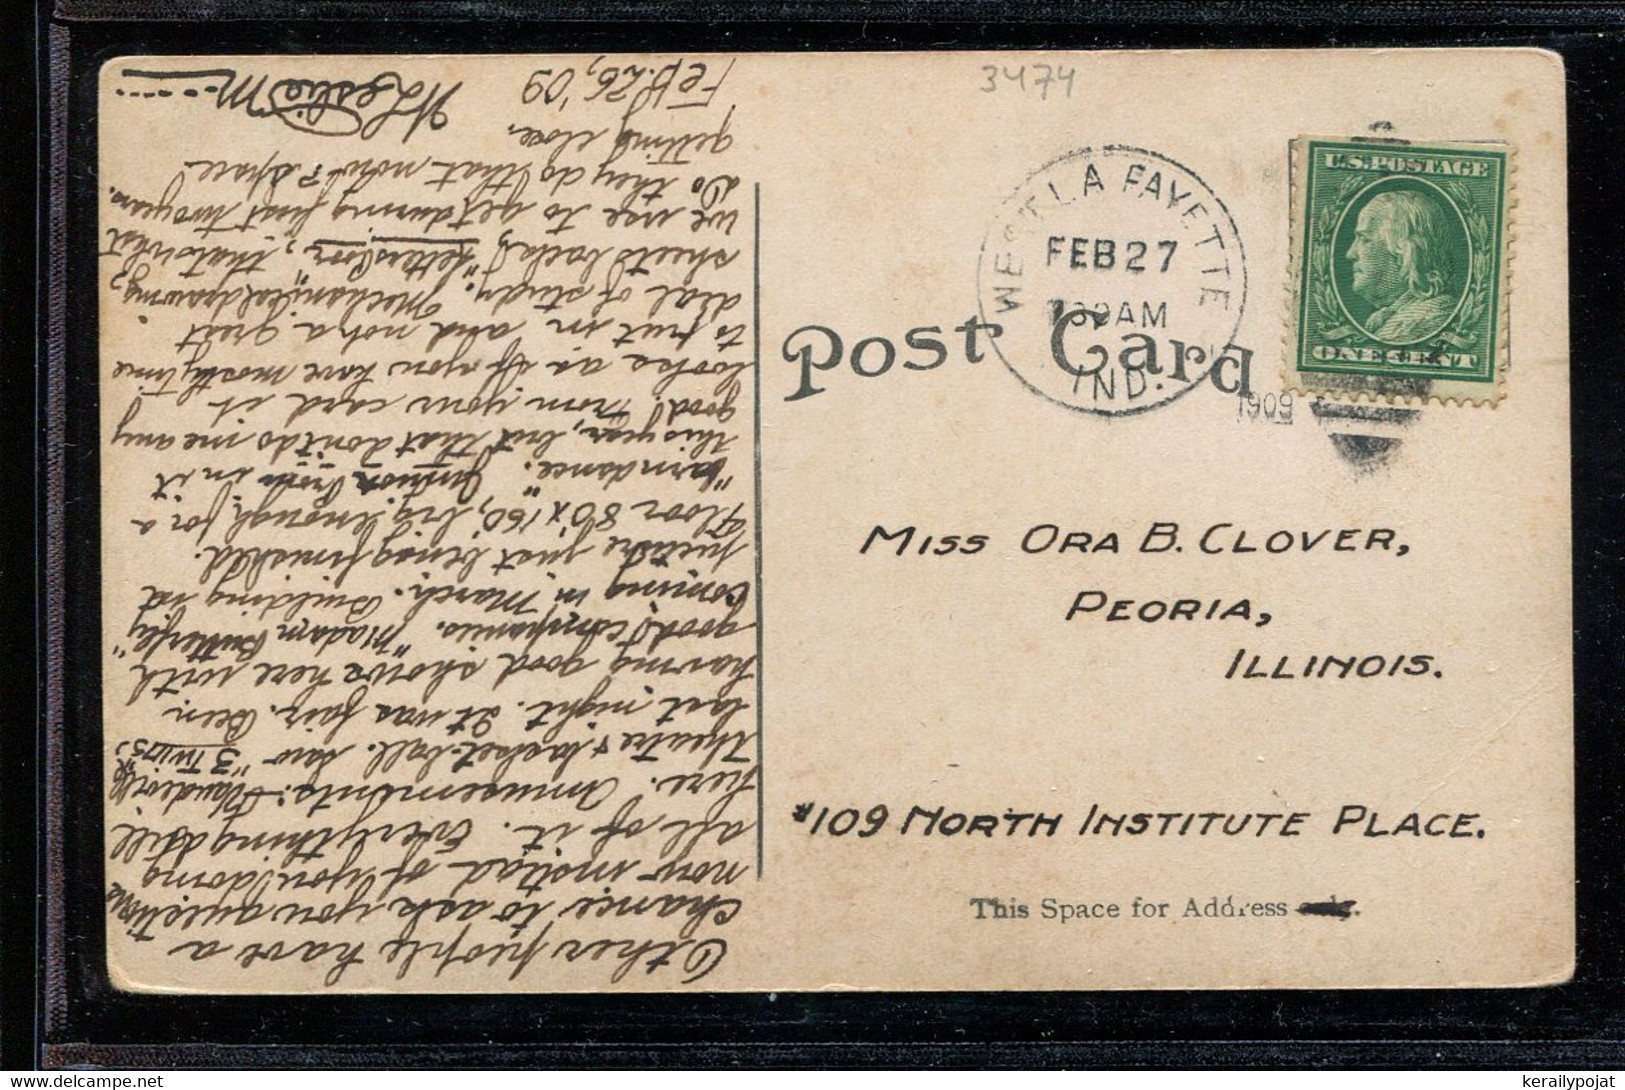 3474
WEST LA FAYETTE
FEB 27
30AM
IND.
1909
U.S. POSTAGE
ONE CENT
Post Card
MISS ORA B. CLOVER,
PEORIA,
ILLINOIS.
#109 NORTH INSTITUTE PLACE.
This Space for Address only.
Other people have a
chance to ask you questions
now instead of you doing
all of it. Everything still
here. Amusements: Vaudeville
theatre & basket-ball. Saw "3 Twins"
last night. It was fair. Been
having good shows here with
good companies. "Madam Butterfly"
coming in March. Building
just being finished.
Floor 80 x 160, big enough for a
"barn dance." Junior Prom in it
this year, but that don't do me any
good. From your card it
looks as if you have mostly time
to put in and not a great
deal of study. Mechanical drawing,
sheets back, "Letters Poor", that's what
we use to get during first two years.
Do they do that now? Space
getting close.
Feb. 26, '09
W Leslie M
kerailypojat